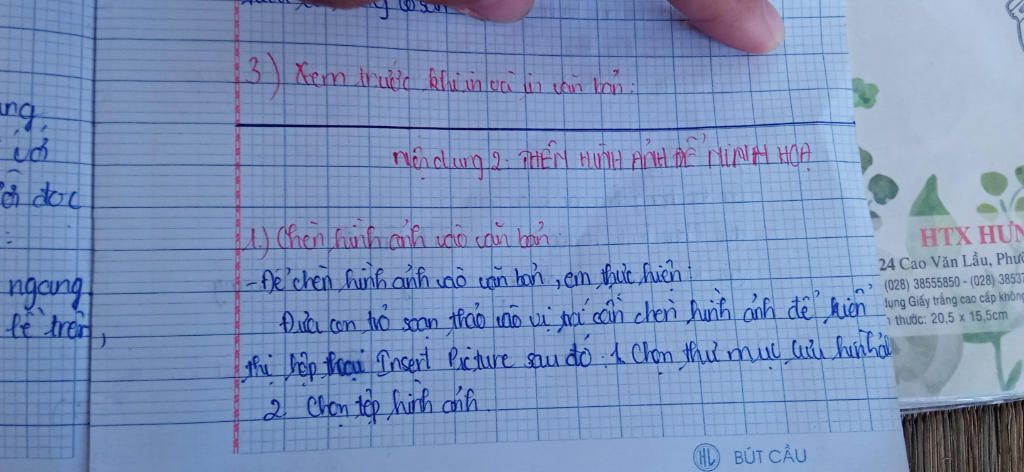 3) Xem trước khi in và in văn bản:
Nội dung 2: THÊM HÌNH ẢNH ĐỂ MINH HỌA
1.) Chèn hình ảnh vào văn bản
- Để chèn hình ảnh vào văn bản, em thực hiện:
Đưa con trỏ soạn thảo vào vị trí cần chèn hình ảnh để hiển
thị hộp thoại Insert Picture sau đó: 1. Chọn thư mục lưu hình ả
2 Chọn tệp hình ảnh
ang
đọc
ngang
lề trên,
HTX HƯN
24 Cao Văn Lầu, Phườ
(028) 38555850 - (028) 3853
dụng Giấy trắng cao cấp không
thước: 20,5 x 15,5cm
HL BÚT CẦU